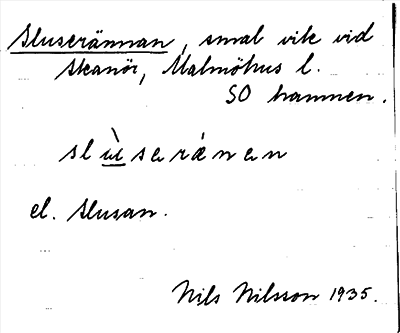 Sluserännan, smal vik vid
Skanör, Malmöhus l.
SO hamnen.
slùseránen
el. Slusan.
Nils Nilsson 1935.